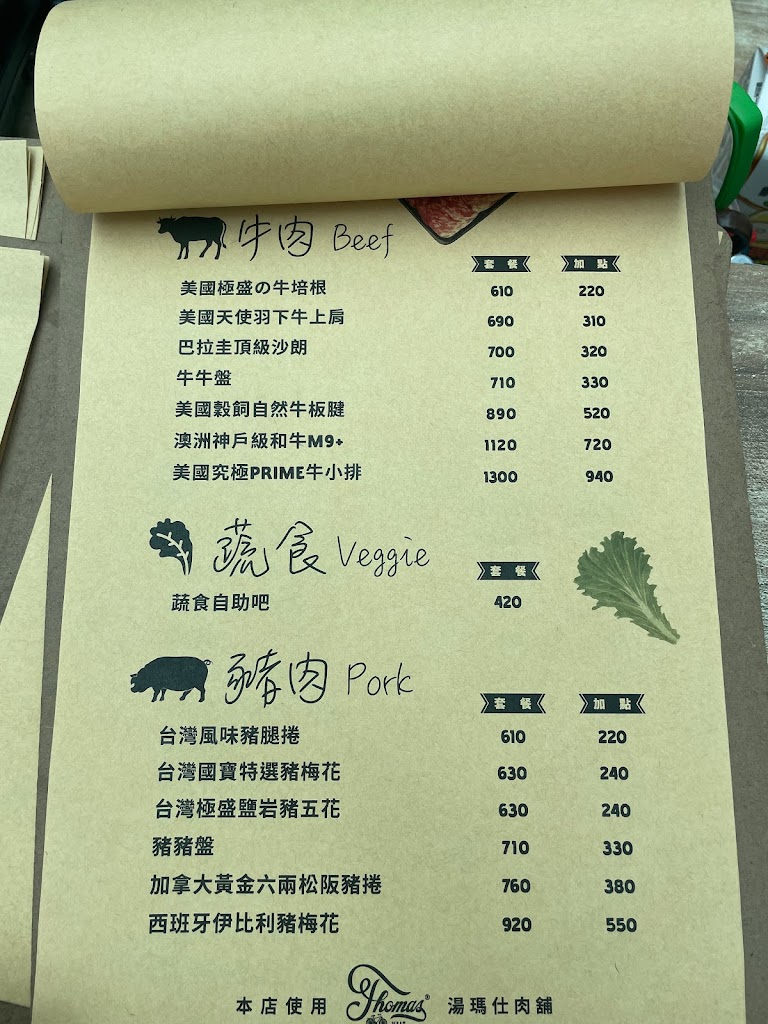 牛肉 Beef
套餐 加點
美國極盛の牛培根 610 220
美國天使羽下牛上肩 690 310
巴拉圭頂級沙朗 700 320
牛牛盤 710 330
美國穀飼自然牛板腱 890 520
澳洲神戶級和牛M9+ 1120 720
美國究極PRIME牛小排 1300 940
蔬食 Veggie
套餐
蔬食自助吧 420
豬肉 Pork
套餐 加點
台灣風味豬腿捲 610 220
台灣國寶特選豬梅花 630 240
台灣極盛鹽岩豬五花 630 240
豬豬盤 710 330
加拿大黃金六兩松阪豬捲 760 380
西班牙伊比利豬梅花 920 550
本店使用 Thomas® 湯瑪仕肉舖